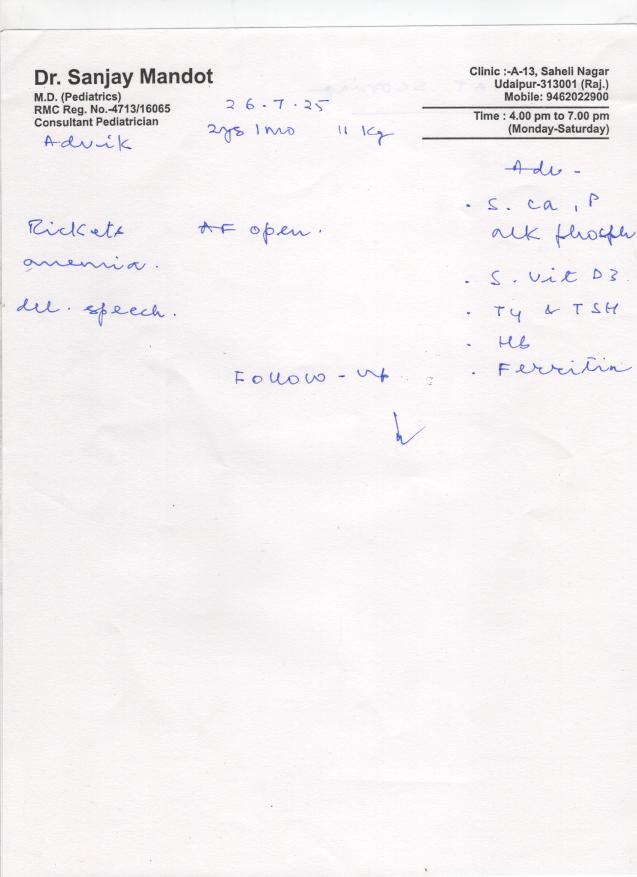 Dr. Sanjay Mandot
M.D. (Pediatrics)
RMC Reg. No.-4713/16065
Consultant Pediatrician
Clinic :-A-13, Saheli Nagar
Udaipur-313001 (Raj.)
Mobile: 9462022900
Time : 4.00 pm to 7.00 pm
(Monday-Saturday)
26.7.25
Advik
2ys 1mo 11 Kg
Adv -
Rickets AF open.
anemia.
del. speech.
. S. Ca, P
alk phosph
. S. Vit D3
. T4 & TSH
. Hb
. Ferritin
Follow-up